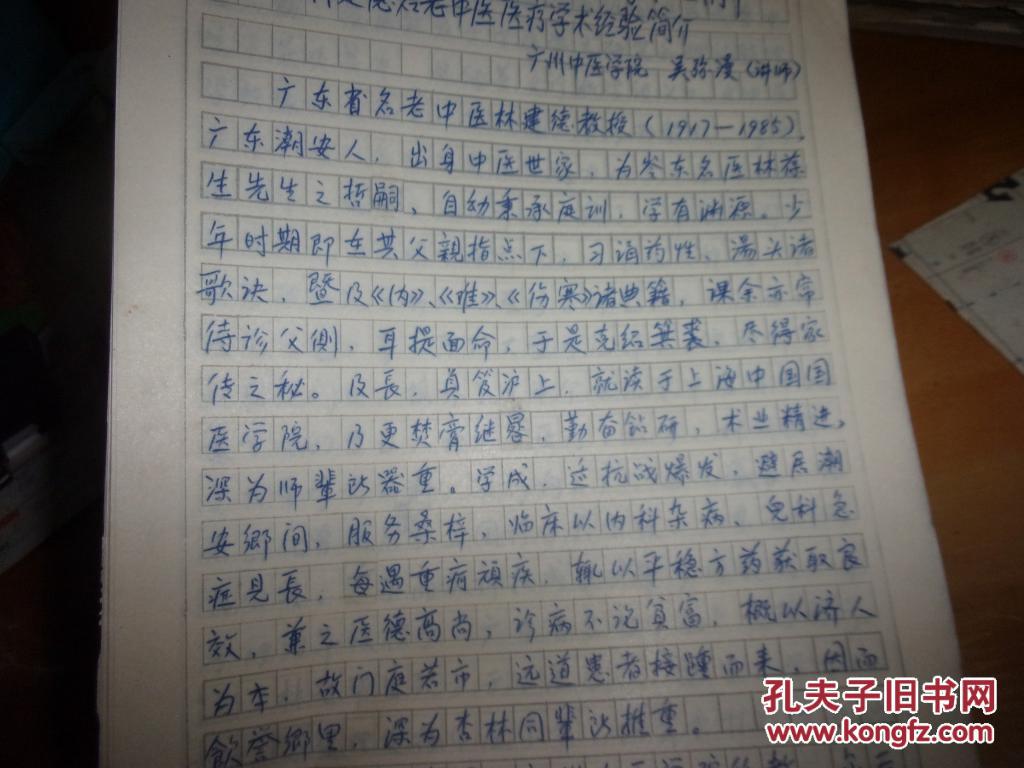 老中医医疗学术经验简介
广州中医学院 吴弥漫(讲师)
广东省名老中医林建德教授(1917—1985),
广东潮安人,出身中医世家,为岭东名医林荐
生先生之哲嗣、自幼秉承庭训,学有渊源。少
年时期即在其父亲指点下,习诵药性、汤头诸
歌诀,暨及《内》、《难》、《伤寒》诸典籍,课余亦常
侍诊父侧,耳提面命,于是克绍箕裘,尽得家
传之秘。及長,負笈沪上,就读于上海中国国
医学院,乃更焚膏继晷,勤奋鉆研,术业精进,
深为师辈所器重。学成,适抗战爆发,避居潮
安鄉间,服务桑梓,临床以内科杂病、兒科急
症見長,每遇重疴頑疾,輒以平稳方药获取良
效,兼之医德高尚,诊病不论貧富,概以济人
为本,故门庭若市,远道患者接踵而来,因而
飲誉鄉里,深为杏林同輩所推重。
孔夫子旧书网
www.kongfz.com